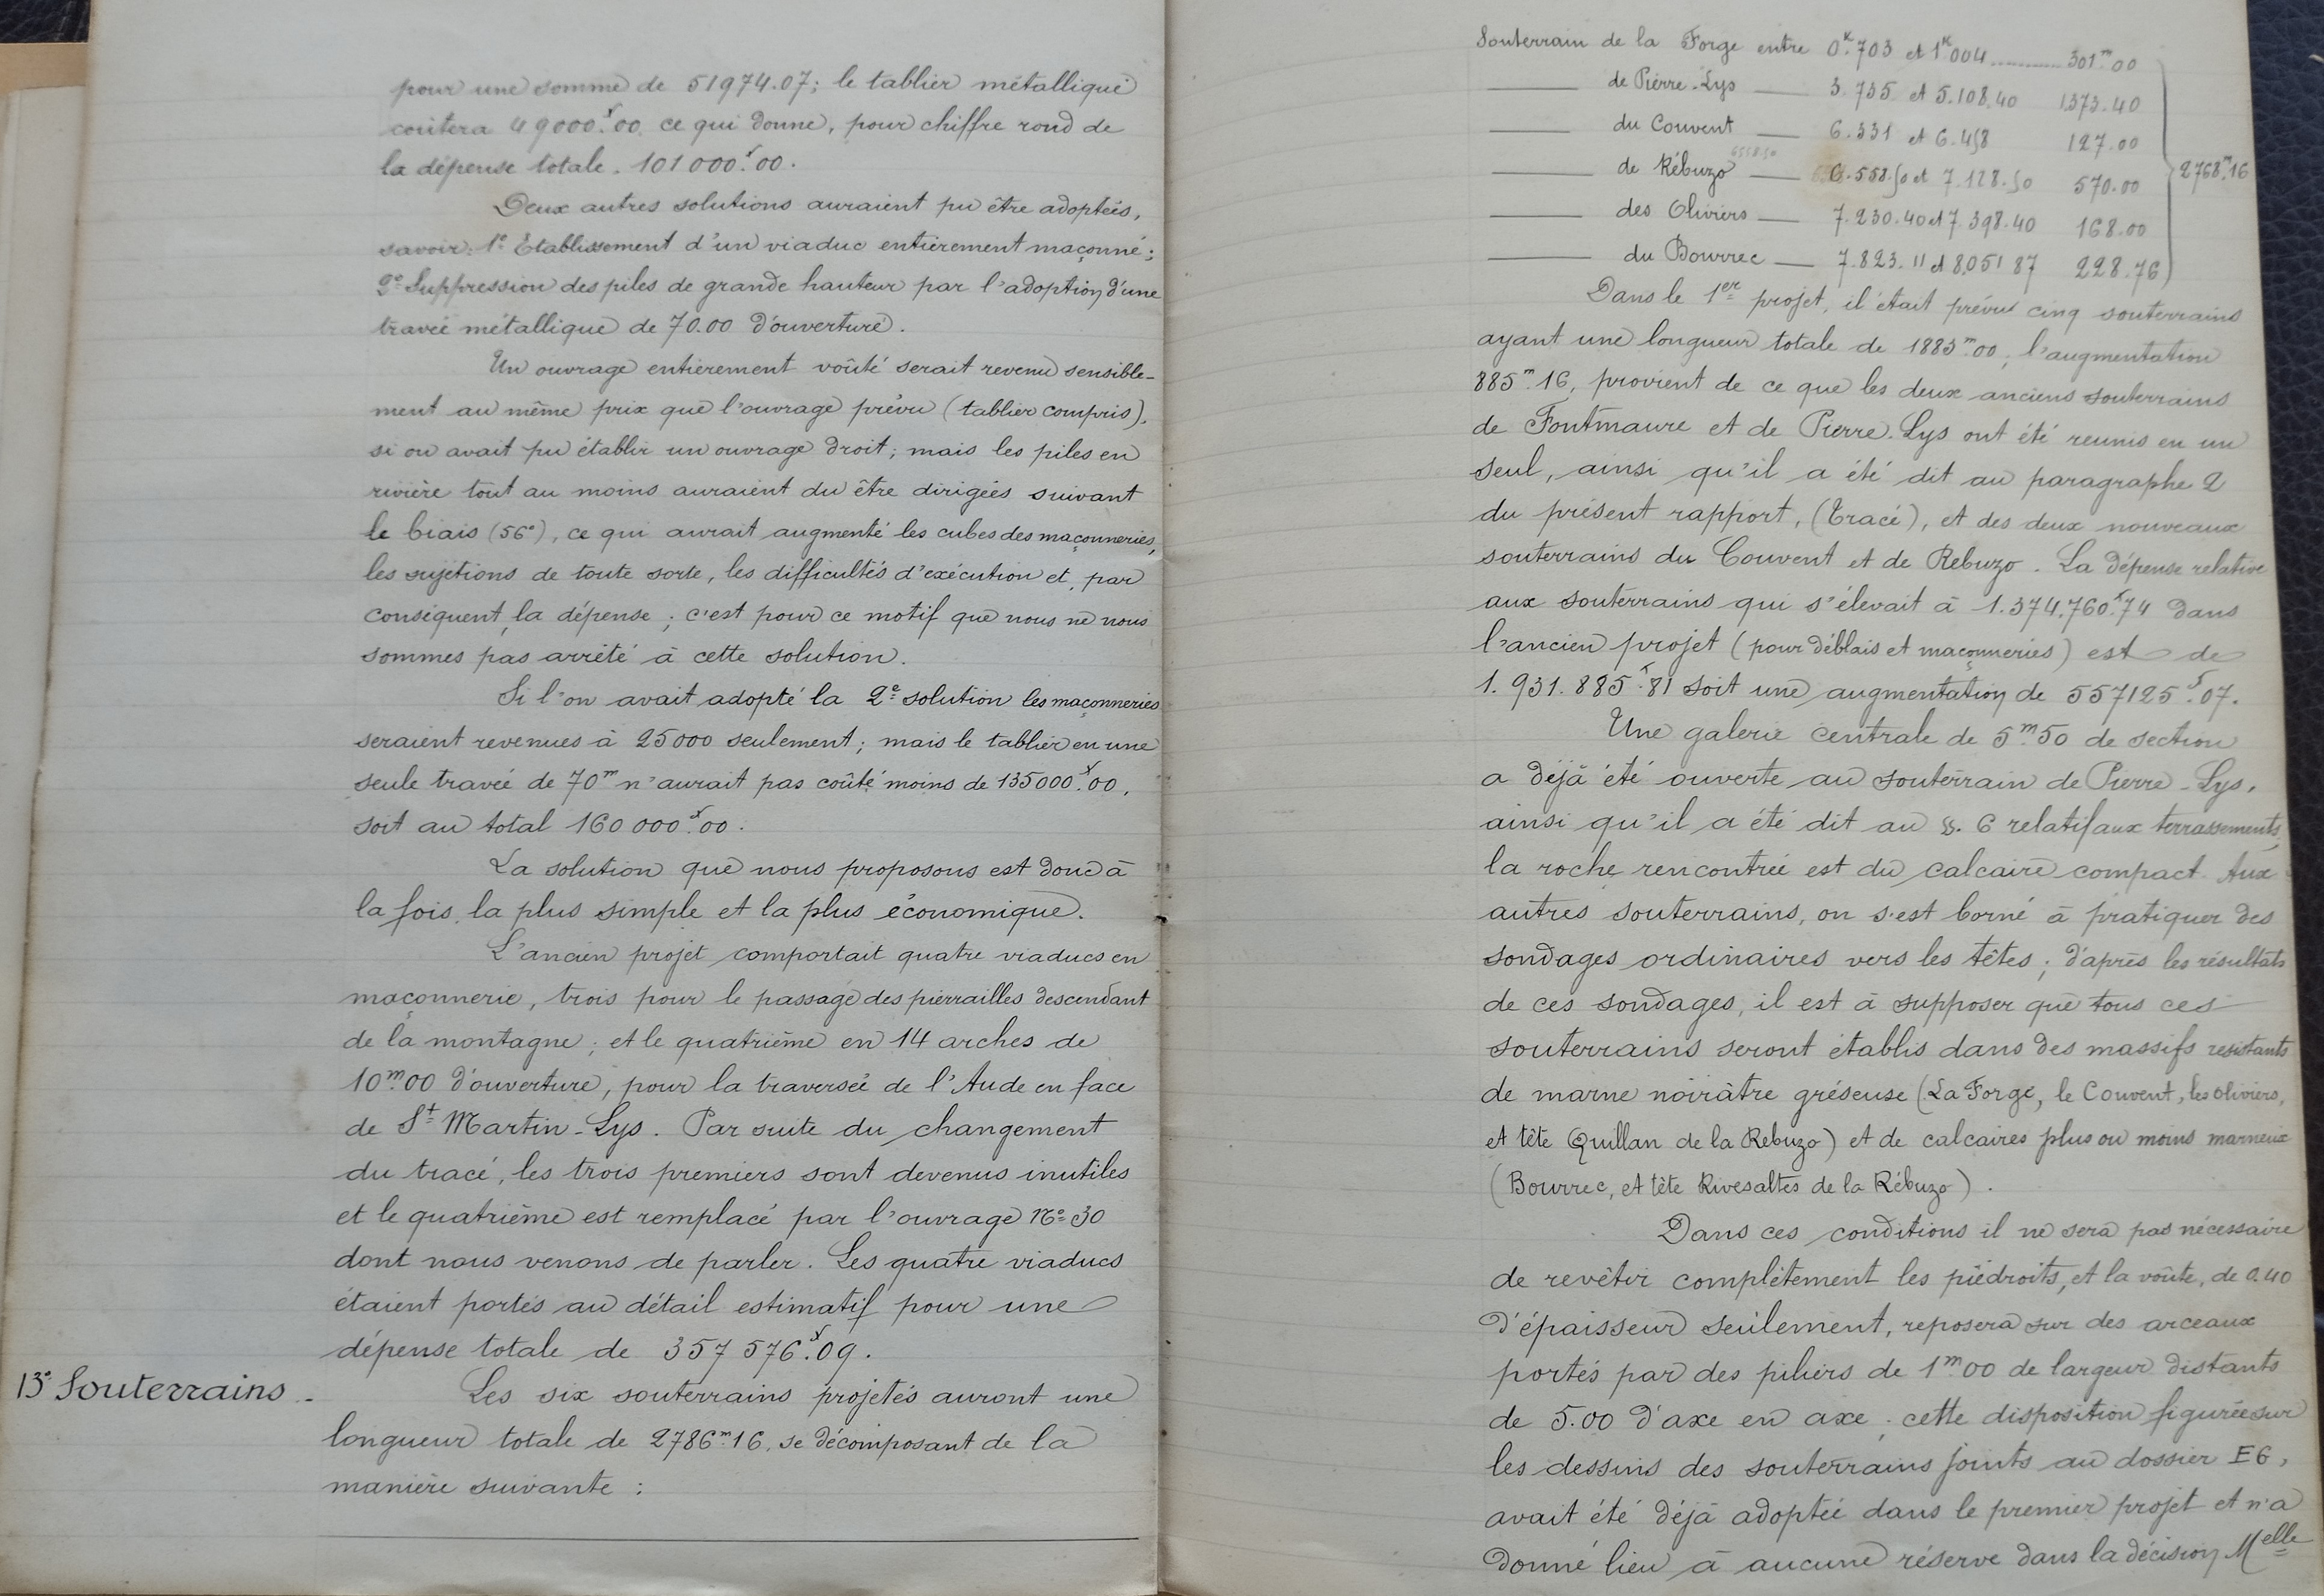 pour une somme de 51974.07; le tablier métallique
coûtera 49000f.00 ce qui donne, pour chiffre rond de
la dépense totale. 101000f.00.
Deux autres solutions auraient pu être adoptées,
savoir: 1° Etablissement d'un viaduc entièrement maçonné;
2° Suppression des piles de grande hauteur par l'adoption d'une
travée métallique de 70.00 d'ouverture.
Un ouvrage entièrement voûté serait revenu sensible-
ment au même prix que l'ouvrage prévu (tablier compris),
si on avait pu établir un ouvrage droit; mais les piles en
rivière tout au moins auraient du être dirigées suivant
le biais (56°), ce qui aurait augmenté les cubes des maçonneries,
les sujétions de toute sorte, les difficultés d'exécution et, par
conséquent, la dépense; c'est pour ce motif que nous ne nous
sommes pas arrêté à cette solution.
Si l'on avait adopté la 2e solution les maçonneries
seraient revenues à 25000 seulement; mais le tablier en une
seule travée de 70m n'aurait pas coûté moins de 135000f.00,
soit au total 160000f.00.
La solution que nous proposons est donc à
la fois la plus simple et la plus économique.
L'ancien projet comportait quatre viaducs en
maçonnerie, trois pour le passage des pierrailles descendant
de la montagne; et le quatrième en 14 arches de
10m.00 d'ouverture, pour la traversée de l'Aude en face
de St Martin-Lys. Par suite du changement
du tracé, les trois premiers sont devenus inutiles
et le quatrième est remplacé par l'ouvrage No 30
dont nous venons de parler. Les quatre viaducs
étaient portés au détail estimatif pour une
dépense totale de 357 576f.09.
13° Souterrains.-
Les six souterrains projetés auront une
longueur totale de 2786m.16, se décomposant de la
manière suivante:
Souterrain de la Forge entre 0k.703 et 1k.004 ........ 301m.00
—— de Pierre-Lys —— 3.735 et 5.108.40 1373.40
—— du Couvent —— 6.331 et 6.458 127.00
6558.50
—— de Rébuzo —— 6.558.50 et 7.128.50 570.00
2768m.16
—— des Oliviers —— 7.230.40 et 7.398.40 168.00
—— du Bourrec —— 7.823.11 et 8.051 87 228.76
Dans le 1er projet, il était prévu cinq souterrains
ayant une longueur totale de 1883m.00; l'augmentation
885m.16, provient de ce que les deux anciens souterrains
de Fontmaure et de Pierre-Lys ont été reunis en un
seul, ainsi qu'il a été dit au paragraphe 2
du présent rapport, (Tracé), et des deux nouveaux
souterrains du Couvent et de Rebuzo. La dépense relative
aux souterrains qui s'élevait à 1.374.760f.74 dans
l'ancien projet (pour déblais et maçonneries) est de
1.931.885f.81 soit une augmentation de 557125f.07.
Une galerie centrale de 5m.50 de section
a déjà été ouverte au souterrain de Pierre-Lys,
ainsi qu'il a été dit au §. 6 relatif aux terrassements,
la roche rencontrée est du calcaire compact. Aux
autres souterrains, on s'est borné à pratiquer des
sondages ordinaires vers les têtes; d'après les résultats
de ces sondages, il est à supposer que tous ces
souterrains seront établis dans des massifs resistants
de marne noirâtre gréseuse (La Forge, le Couvent, les Oliviers,
et tête Quillan de la Rebuzo) et de calcaires plus ou moins marneux
(Bourrec, et tête Rivesaltes de la Rébuzo).
Dans ces conditions il ne sera pas nécessaire
de revêtir complètement les piédroits, et la voûte, de 0.40
d'épaisseur seulement, reposera sur des arceaux
portés par des piliers de 1m.00 de largeur distants
de 5.00 d'axe en axe; cette disposition figurée sur
les dessins des souterrains joints au dossier E6,
avait été déjà adoptée dans le premier projet et n'a
donné lieu à aucune réserve dans la décision Melle